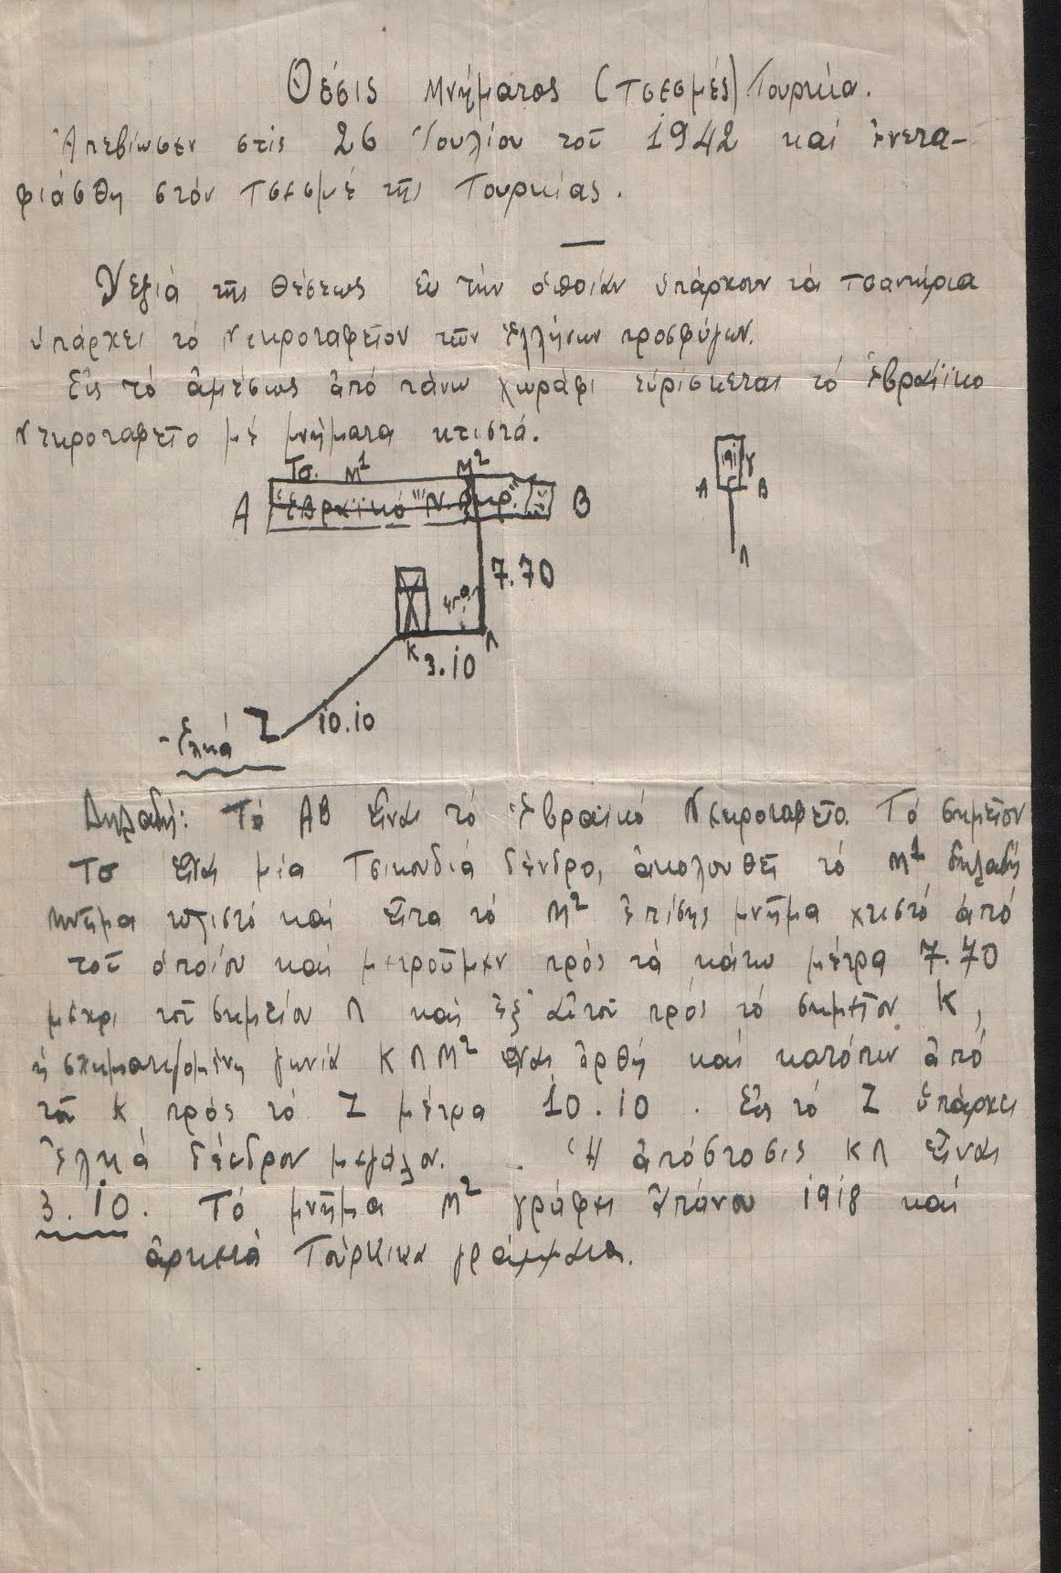 Θέσις Μνήματος (Τσεσμές) Τουρκία.
Ἀπεβίωσεν στίς 26 Ἰουλίου τοῦ 1942 καί ἐνετα-
φιάσθη στόν Τσεσμέ τῆς Τουρκίας.
Δεξιά τῆς θέσεως εἰς τήν ὁποίαν ὑπάρχουν τά τσαντήρια
ὑπάρχει τό Νεκροταφεῖον τῶν Ἑλλήνων προσφύγων.
Εἰς τό ἀμέσως ἀπό πάνω χωράφι εὑρίσκεται τό Ἑβραϊκο
Νεκροταφεῖο μέ μνήματα κτιστά.
Τσ. Μ1 Μ2
Α Ἑβραϊκό Νεκρ. Β
Α Β
Λ
7.70
Κ 3.10 Λ
Ζ 10.10
Ἐλιά
Δηλαδή: Τό ΑΒ εἶναι τό Ἑβραϊκό Νεκροταφεῖο. Τό σημεῖον
Τσ εἶναι μία Τσικουδιά δένδρο, ἀκολουθεῖ τό Μ1 δηλαδή
μνῆμα κτιστό καί εἶτα τό Μ2 ἐπίσης μνῆμα χτιστό ἀπό
τοῦ ὁποίου καί μετροῦμεν πρός τά κάτω μέτρα 7.70
μέχρι τοῦ σημείου Λ καί ἐξ αὐτοῦ πρός τό σημεῖον Κ,
ἡ σχηματιζομένη γωνία ΚΛΜ2 εἶναι ὀρθή καί κατόπιν ἀπό
τοῦ Κ πρός τό Ζ μέτρα 10.10. Εἰς τό Ζ ὑπάρχει
Ἐλιά δένδρον μεγάλον. Ἡ ἀπόστασις ΚΛ εἶναι
3.10. Τό μνῆμα Μ2 γράφει ἐπάνου 1918 καί
ἀρκετά Τούρκικα γράμματα.